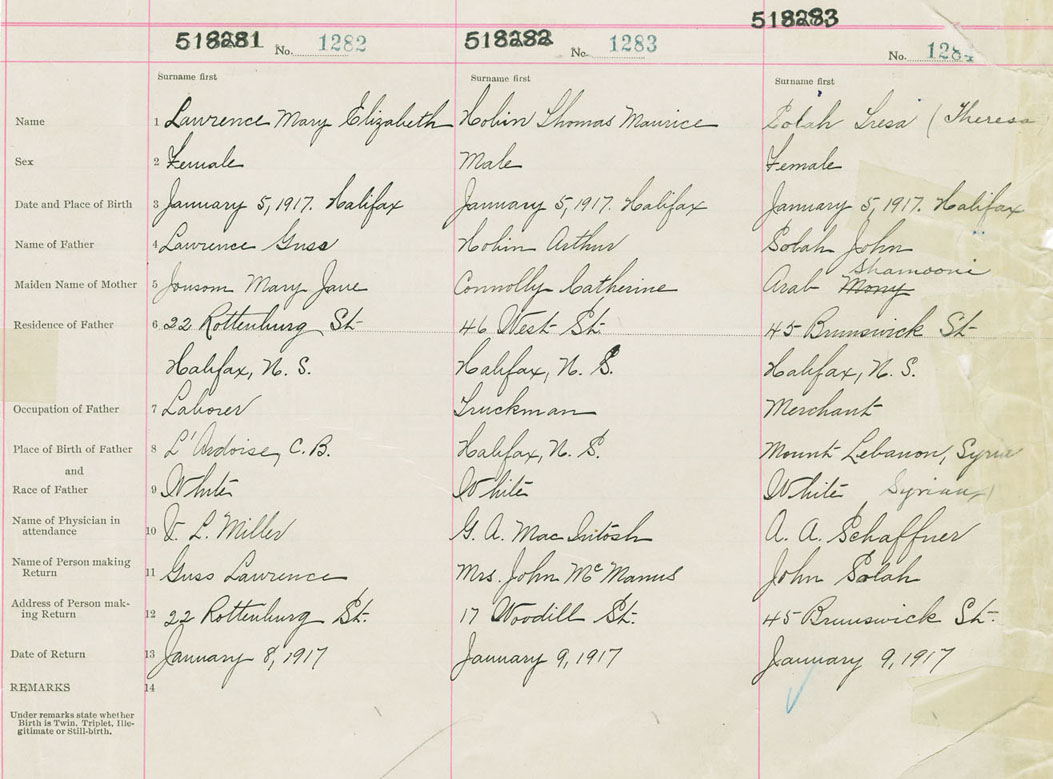 518281 No. 1282 518282 No. 1283 518283 No. 1284
Surname first Surname first Surname first
Name 1 Lawrence Mary Elizabeth Hobin Thomas Maurice Solah Tresa (Theresa
Sex 2 Female Male Female
Date and Place of Birth 3 January 5, 1917. Halifax January 5, 1917. Halifax January 5, 1917. Halifax
Name of Father 4 Lawrence Guss Hobin Arthur Solah John
Shamooni
Maiden Name of Mother 5 Jonsom Mary Jane Connolly Catherine Arab Mony
Residence of Father 6 22 Rottenburg St. 46 West St. 45 Brunswick St.
Halifax, N. S. Halifax, N. S. Halifax, N. S.
Occupation of Father 7 Laborer Truckman Merchant
Place of Birth of Father 8 L'Ardoise, C. B. Halifax, N. S. Mount Lebanon, Syria
and
Race of Father 9 White White White Syrian
Name of Physician in
attendance 10 V. L. Miller G. A. MacIntosh A. A. Schaffner
Name of Person making
Return 11 Guss Lawrence Mrs. John McManus John Solah
Address of Person mak-
ing Return 12 22 Rottenburg St. 17 Woodill St. 45 Brunswick St.
Date of Return 13 January 8, 1917 January 9, 1917 January 9, 1917
REMARKS 14
Under remarks state whether
Birth is Twin, Triplet, Ille-
gitimate or Still-birth.